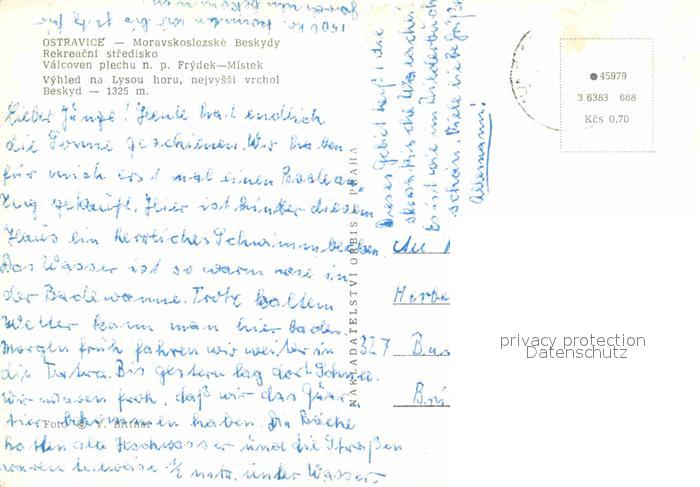 OSTRAVICE — Moravskoslezské Beskydy
Rekreační středisko
Válcoven plechu n. p. Frýdek—Místek
Výhled na Lysou horu, nejvyšší vrchol
Beskyd — 1325 m.
Lieber Junge! Heute hat endlich
die Sonne geschienen. Wir hatten
für mich erst mal einen Badean-
zug gekauft. Hier ist hinter diesem
Haus ein herrliches Schwimmbecken.
Das Wasser ist so warm wie in
der Badewanne. Trotz kaltem
Wetter kann man hier baden.
Morgen früh fahren wir weiter in
die Tatra. Bis gestern lag dort Schnee.
Wir waren froh, daß wir das Quar-
tier bekommen haben. Die Bäche
hatten alle Hochwasser und die Straßen
waren teilweise ½ mtr. unter Wasser.
Foto © V. Bittner
NAKLADATELSTVÍ ORBIS PRAHA
Dieses Gebiet heißt die
Es ist wie im Bilderbuch
schön. Viele liebe Grüße
45979
3 6383 668
Kčs 0.70
An
327
privacy protection
Datenschutz